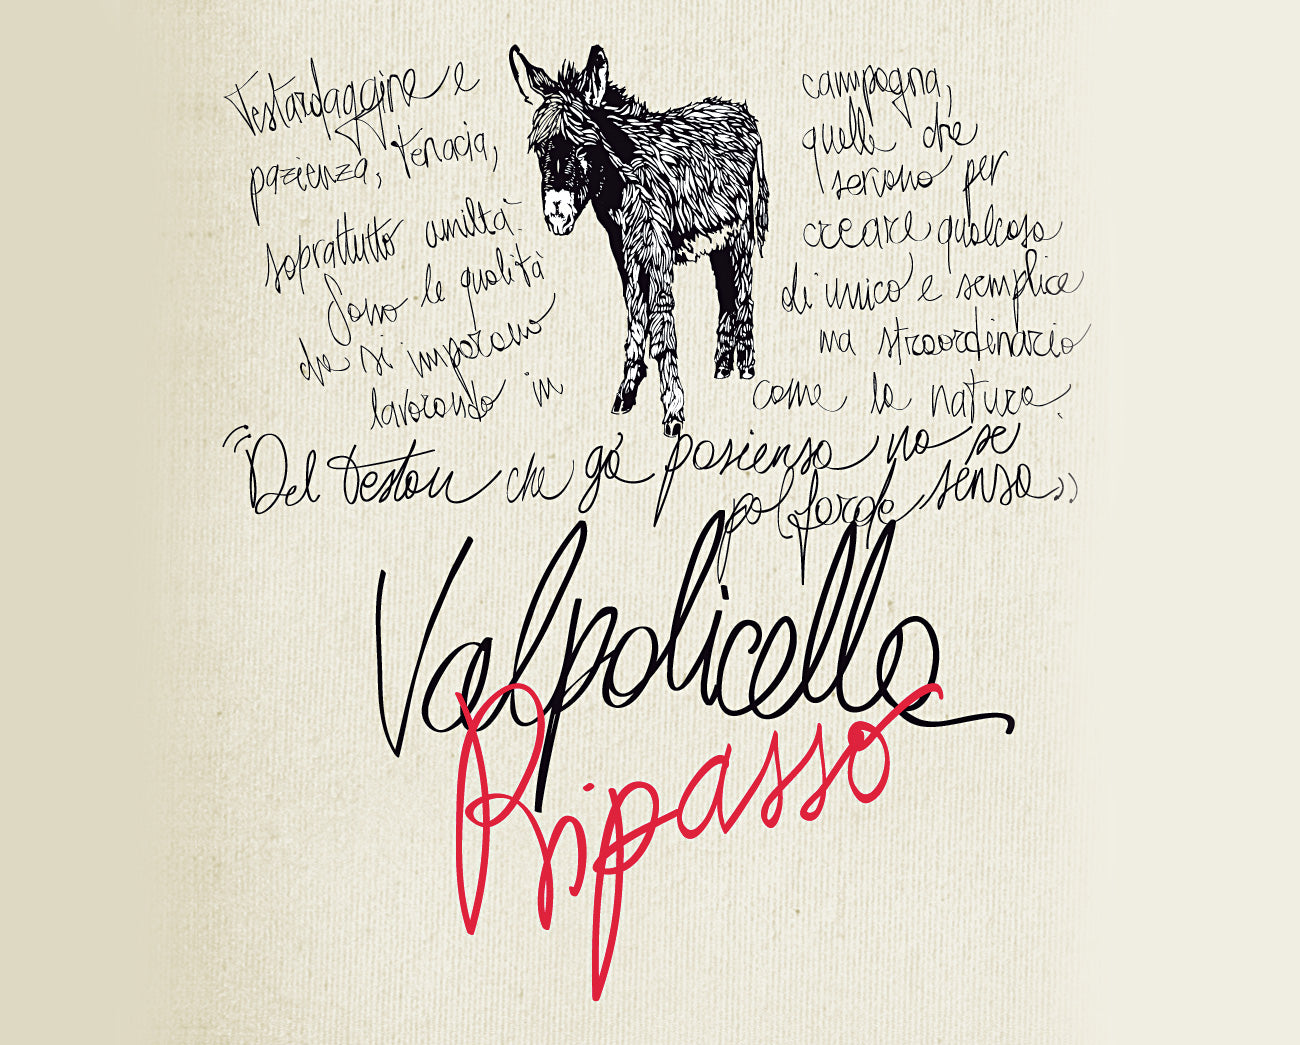 Testardaggine e
pazienza, tenacia,
soprattutto umiltà.
Sono le qualità
che si imparano
lavorando in
campagna,
quelle che
servono per
creare qualcosa
di unico e semplice
ma straordinario
come la natura.
"Del teston che gò pasiensa no se
pol farde sensa"
Valpolicella
Ripasso